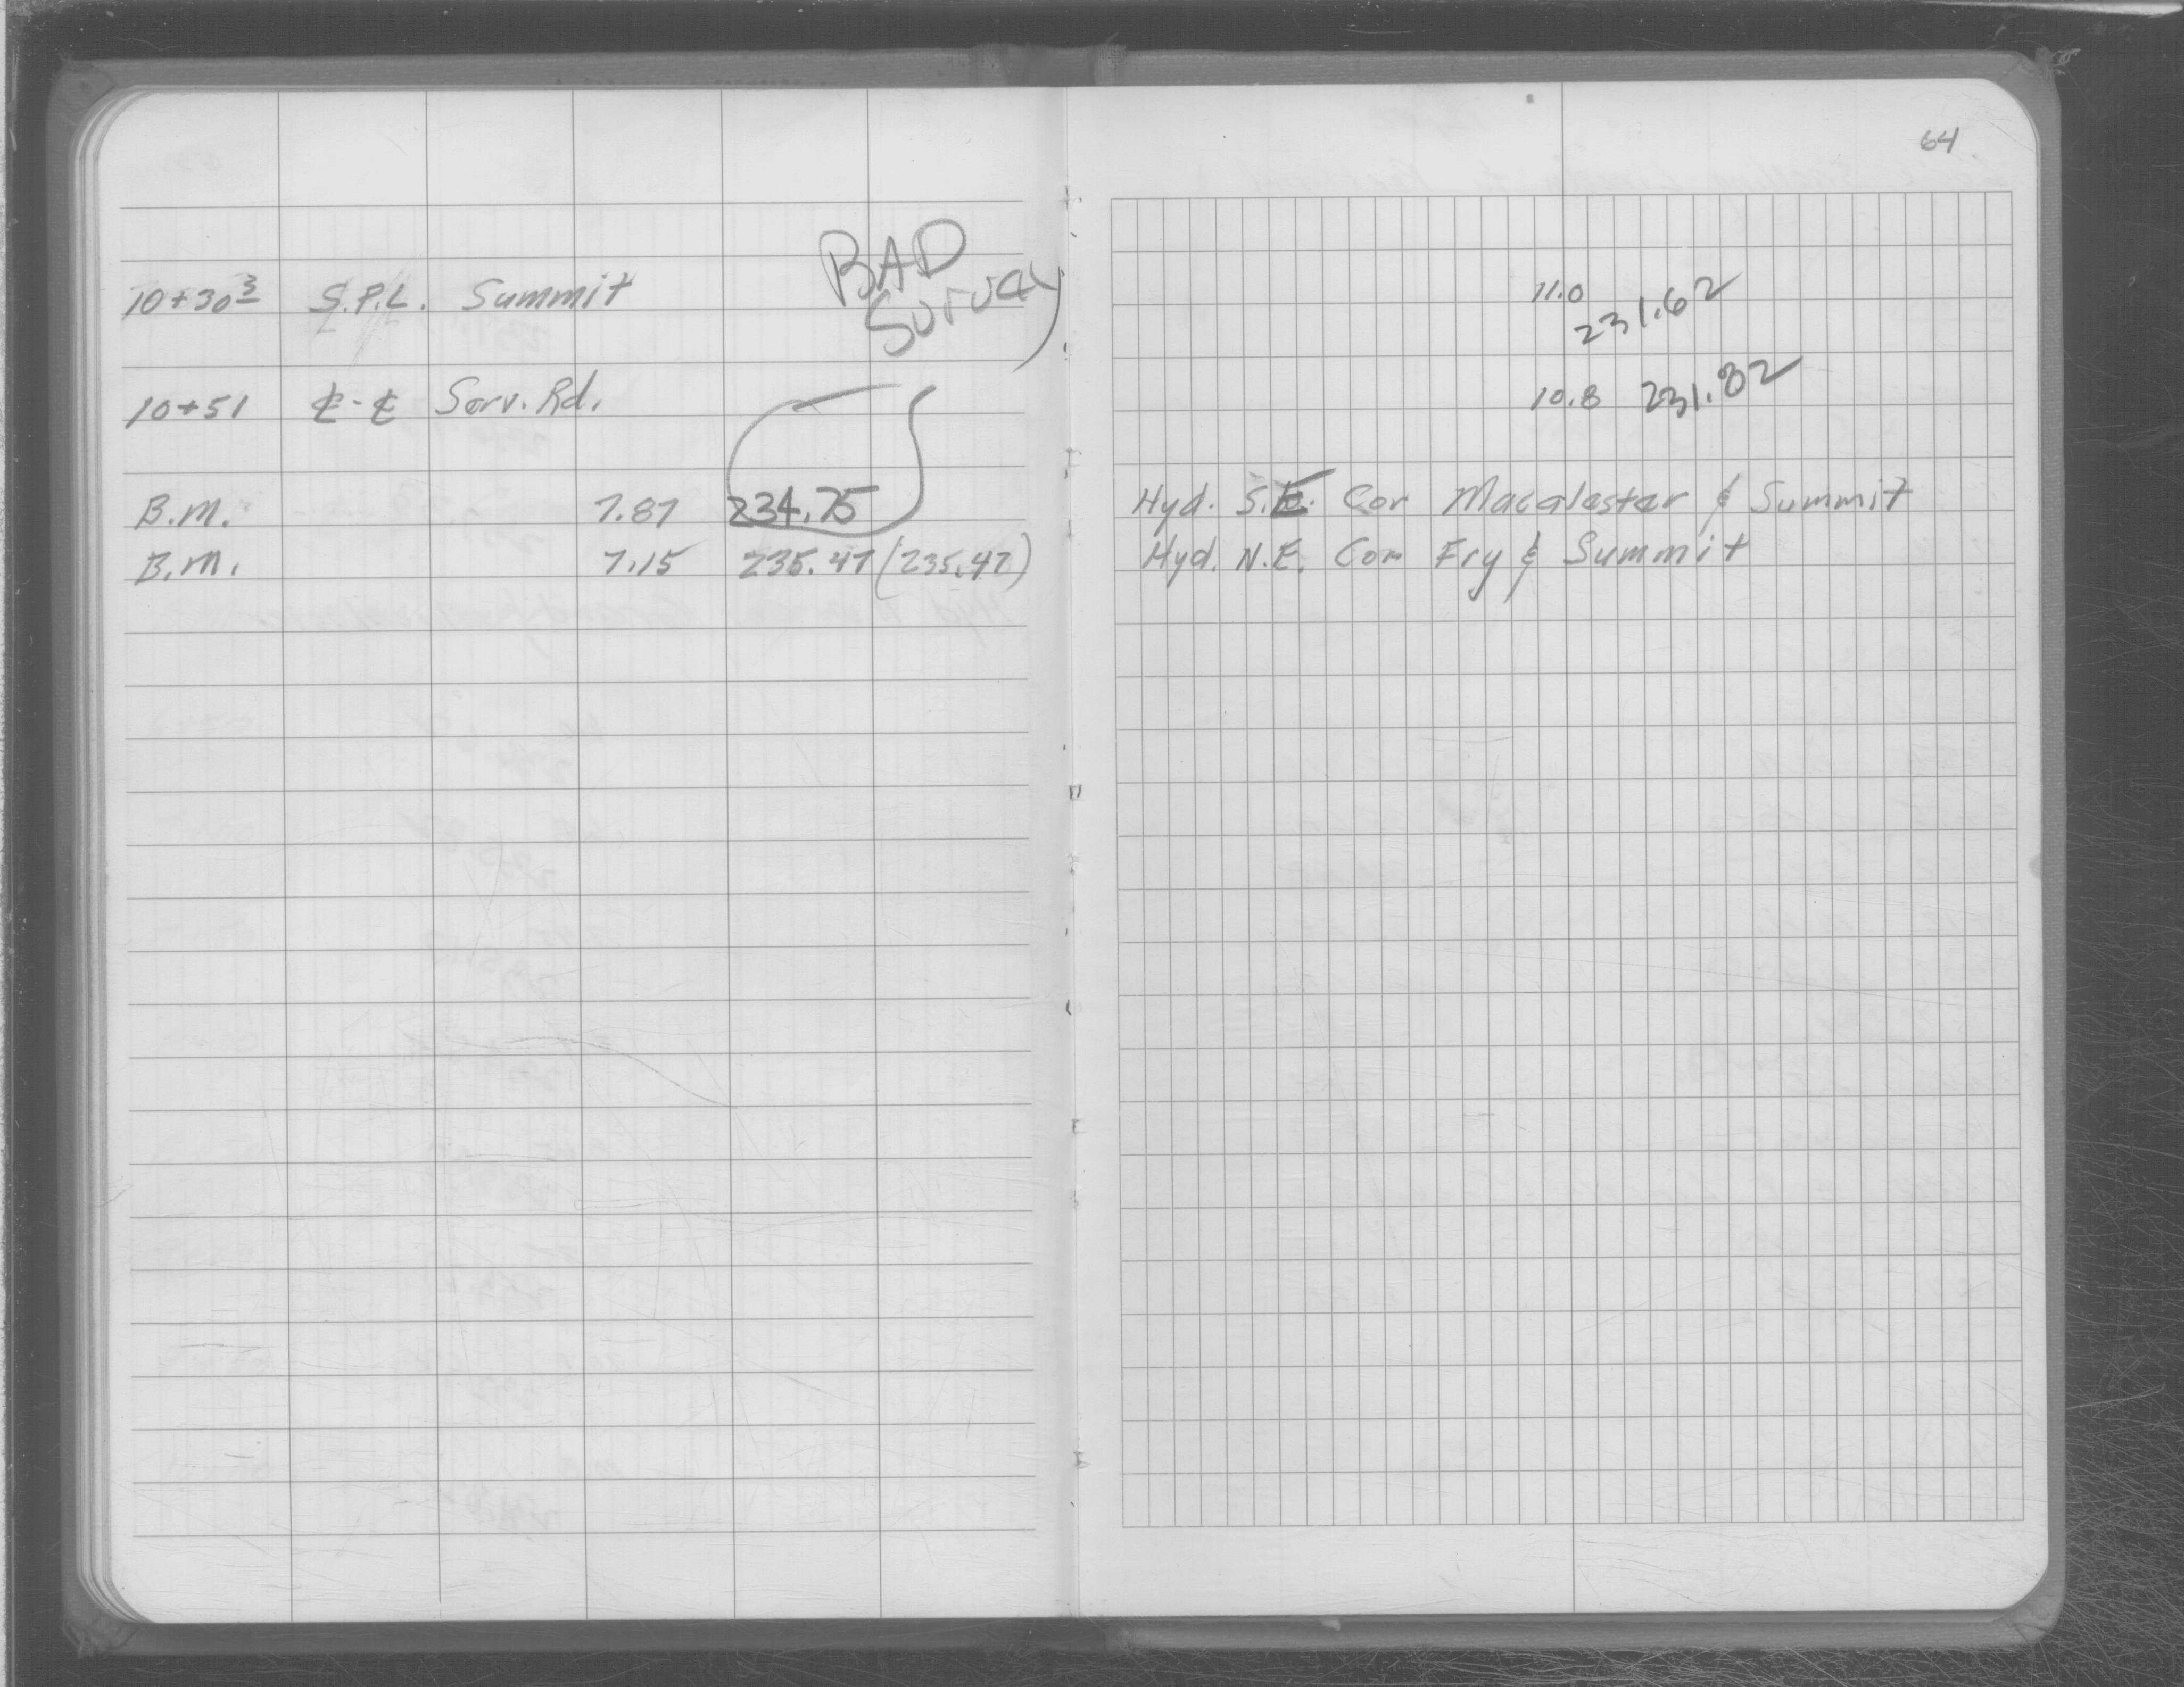 64
BAD
Survey
10+30 3 S.P.L. Summit 11.0
231.62
10+51 ℄-℄ Serv. Rd. 10.8 231.82
B.M. 7.87 234.75 Hyd. S.E. Cor Macalester & Summit
B.M. 7.15 235.47 (235.47) Hyd. N.E. Cor Fry & Summit